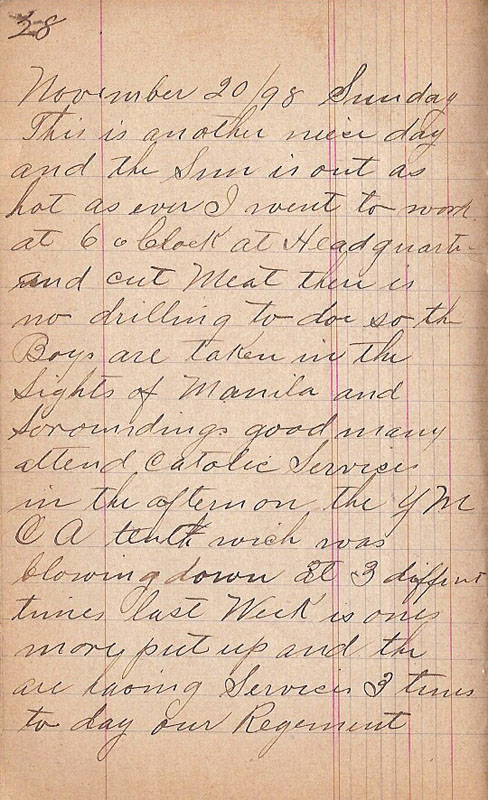 28
November 20/98 Sunday
This is another niece day
and the Sun is out as
hot as ever I went to work
at 6 o Clock at Headquart
and cut Meat there is
no drilling to doe so th
Boys are taken in the
Sights of Manila and
Soroundings good many
attend Catolic Services
in the afternon the Y M
C A tenth wich was
blowing down at 3 diffrent
times last Week is ones
more put up and the
are having Services 3 times
to day our Regement